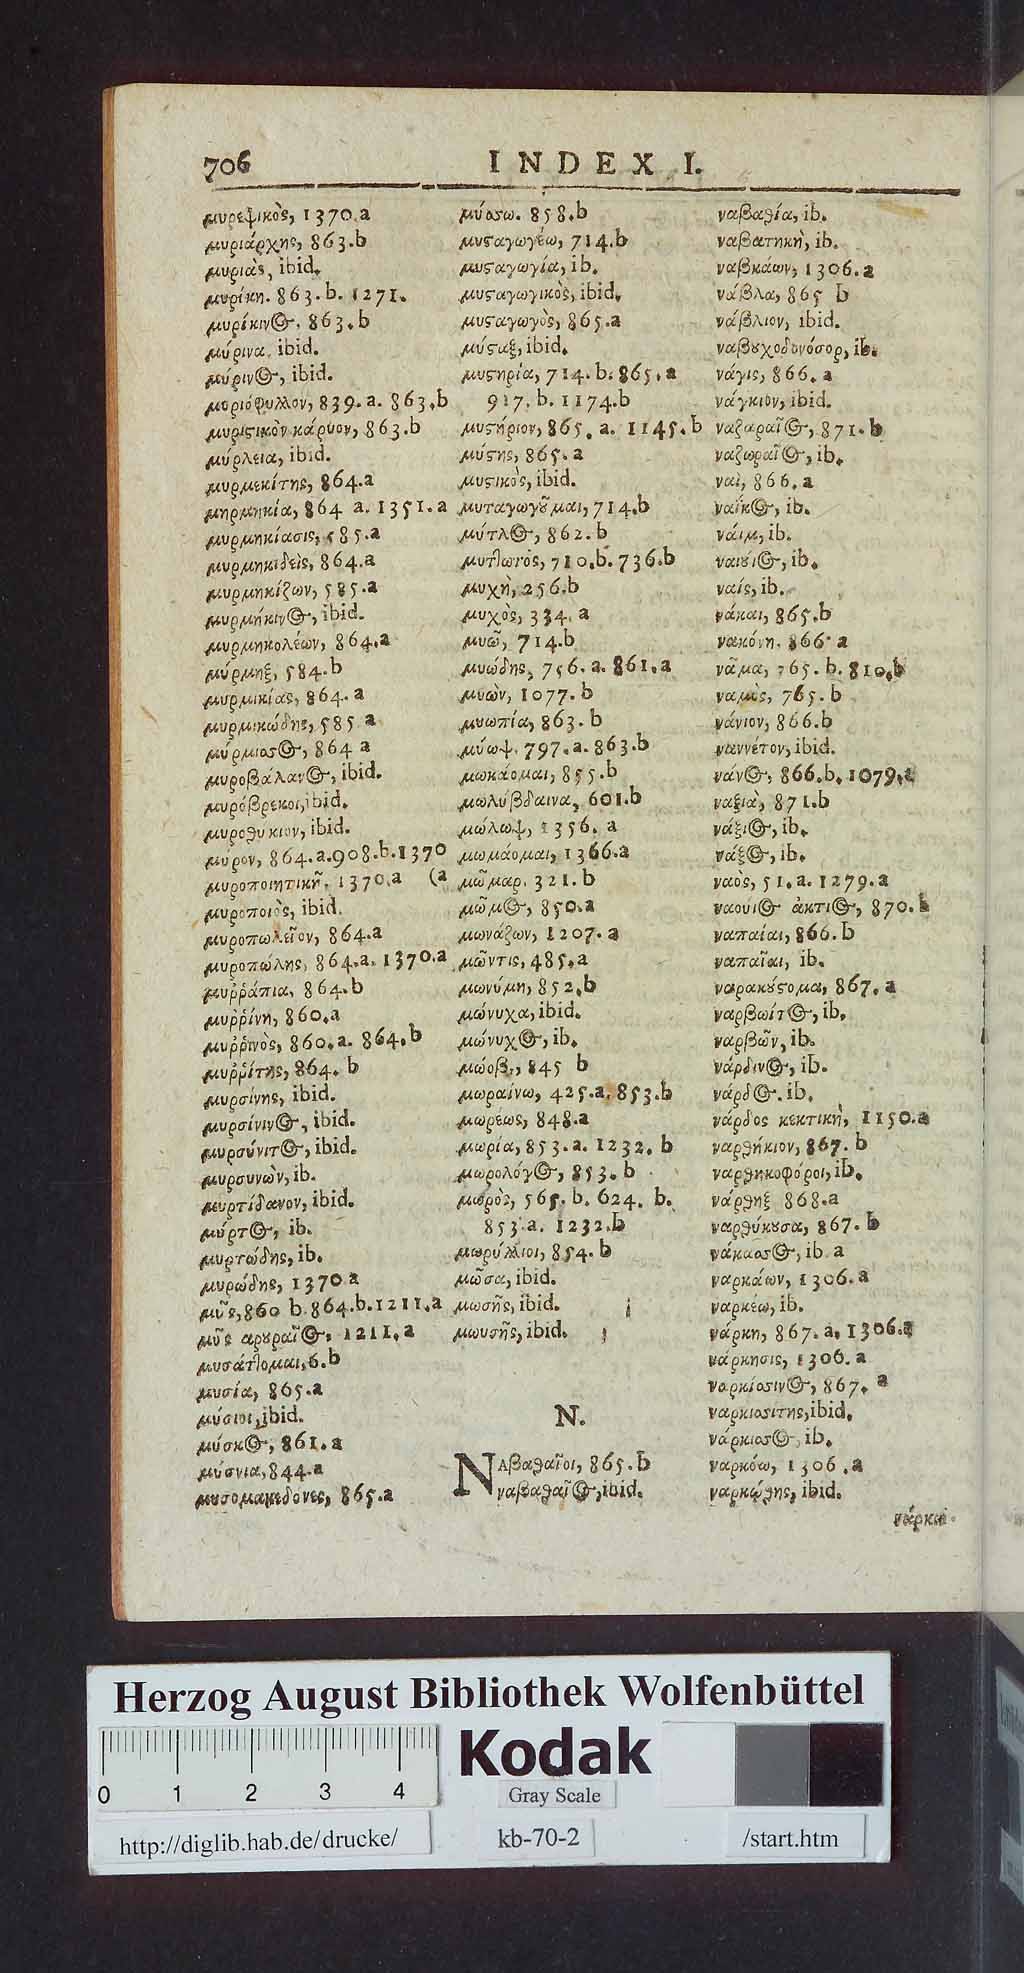 706
INDEX I.
μυρεψικὸς, 1370.a
μυριάρχης, 863.b
μυριὰς, ibid.
μυρίκη. 863.b. 1271.
μυρίκινϚ, 863.b
μύρινα, ibid.
μύρινϚ, ibid.
μυριόφυλλον, 839.a. 863.b
μυριϛικὸν κάρυον, 863.b
μύρλεια, ibid.
μυρμεκίτης, 864.a
μηρμηκία, 864 a. 1351.a
μυρμηκίασις, 585.a
μυρμηκιδεὶς, 864.a
μυρμηκίζων, 585.a
μυρμήκινϚ, ibid.
μυρμηκολέων, 864.a
μύρμηξ, 584.b
μυρμικίας, 864. a
μυρμικώδης, 585 a
μύρμιοσϚ, 864 a
μυροβάλανϚ, ibid.
μυρόβρεκοι, ibid.
μυροθυκιον, ibid.
μύρον, 864.a.908.b.1370
μυροποιητικῆ. 1370.a (a
μυροποιὸς, ibid.
μυροπωλεῖον, 864.a
μυροπώλης, 864.a. 1370.a
μυῤῥάπια, 864.b
μυῤῥίνη, 860.a
μυῤῥινὸς, 860.a. 864.b
μυῤῥίτης, 864. b
μυρσίνης, ibid.
μυρσίνινϚ, ibid.
μυρσύνιτϚ, ibid.
μυρσυνὼν, ib.
μυρτίδανον, ibid.
μύρτϚ, ib.
μυρτώδης, ib.
μυρώδης, 1370 a
μῦς, 860 b. 864.b.1211.a
μῦς αρȣραῖϚ, 1211.a
μυσάτ̃ομαι, 6.b
μυσία, 865.a
μύσιοι, ibid.
μύσκϚ, 861.a
μύσνια, 844.a
μυσομακεδόνες, 865.a
μύοσω. 858.b
μυϛαγωγέω, 714.b
μυϛαγωγία, ib.
μυϛαγωγικὸς, ibid.
μυϛαγωγὸς, 865.a
μύϛαξ, ibid.
μυϛηρία, 714. b. 865. a
917. b. 1174.b
μυϛήριον, 865. a. 1145. b
μύϛης, 865. a
μυϛικὸς, ibid.
μυταγωγȣ͂μαι, 714.b
μύτλϚ, 862. b
μυτλωτός, 710.b. 736.b
μυχὴ, 256.b
μυχὸς, 334. a
μυῶ, 714.b
μυώδης, 756. a. 861.a
μυὼν, 1077. b
μυωπία, 863. b
μύωψ, 797. a. 863.b
μωκάομαι, 855.b
μωλύβδαινα, 601.b
μώλωψ, 1356. a
μωμάομαι, 1366.a
μῶμαρ, 321. b
μῶμϚ, 850.a
μωνάζων, 1207. a
μῶντις, 485.a
μωνύμη, 852.b
μώνυχα, ibid.
μώνυχϚ, ib.
μώοβ, 845 b
μωραίνω, 425.a. 853.b
μωρέως, 848.a
μωρία, 853. a. 1232. b
μωρολόγϚ, 853. b
μωρὸς, 565. b. 624. b.
853. a. 1232.b
μωρύλλιοι, 854. b
μῶσα, ibid.
μωσῆς, ibid.
μωυσῆς, ibid.
N.
Ναβαθαῖοι, 865. b
ναβαθαῖϚ, ibid.
ναβαθία, ib.
ναβατηκὴ, ib.
ναβκάων, 1306. a
νάβλα, 865 b
νάβλιον, ibid.
ναβȣχοδονόσορ, ib.
νάγις, 866. a
νάγκιον, ibid.
ναζαραῖϚ, 871. b
ναζωραῖϚ, ib.
ναὶ, 866. a
ναΐκϚ, ib.
νάιμ, ib.
ναιȣίϚ, ib.
ναίς, ib.
νάκαι, 865.b
νακόνη. 866. a
νᾶμα, 765. b. 810.b
ναμὸς, 765. b
νάνιον, 866.b
ναννέτον, ibid.
νάνϚ, 866.b. 1079.a
ναξιὰ, 871.b
νάξιϚ, ib.
νάξϚ, ib.
ναὸς, 51. a. 1279. a
ναουιϚ ἀκτιϚ, 870. b
ναπαίαι, 866. b
ναπαῖαι, ib.
ναρακύϛομα, 867. a
ναρβωίτϚ, ib.
ναρβῶν, ib.
νάρδινϚ, ib.
νάρδϚ. ib.
νάρδος κεκτικὴ, 1150.a
ναρθήκιον, 867. b
ναρθηκοφόροι, ib.
νάρθηξ 868.a
ναρθύκȣσα, 867. b
νάκαοσϚ, ib. a
ναρκάων, 1306. a
ναρκέω, ib.
νάρκη, 867. a. 1306.a
νάρκησις, 1306. a
ναρκίοσινϚ, 867. a
ναρκιοσίτης, ibid.
νάρκιοσϚ, ib.
ναρκόω, 1306 .a
ναρκώθης, ibid.
νάρκω
Herzog August Bibliothek Wolfenbüttel
0 1 2 3 4
Kodak
Gray Scale
http://diglib.hab.de/drucke/
kb-70-2
/start.htm